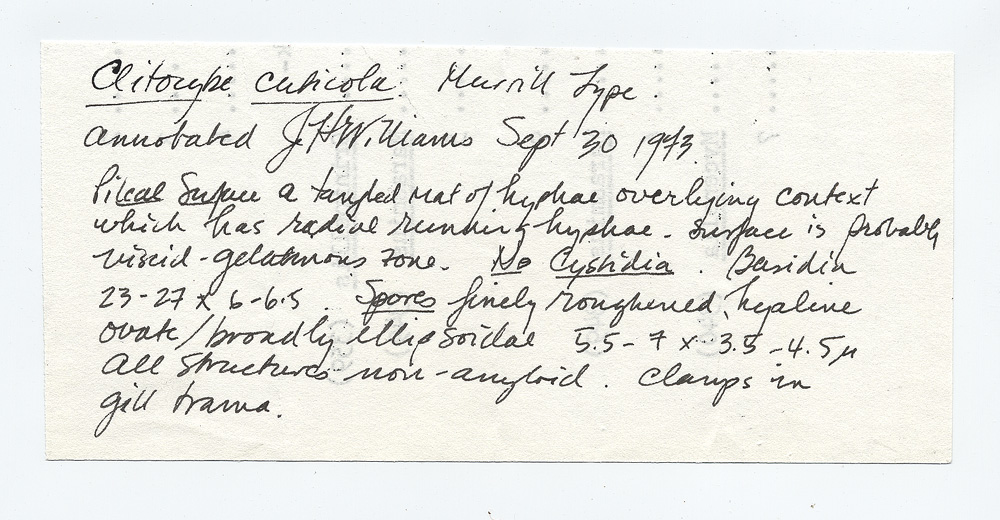 Clitocybe cuticola Murrill Type.
annotated JHWilliams Sept 30 1973.
Pileal Surface a tangled mat of hyphae overlying context
which has radial running hyphae. Surface is probably
viscid-gelatinous zone. No Cystidia. Basidia
23-27 x 6-6.5. Spores finely roughened, hyaline
ovate/broadly ellipsoidal 5.5-7 x 3.5-4.5µ
All structures non-amyloid. Clamps in
gill trama.